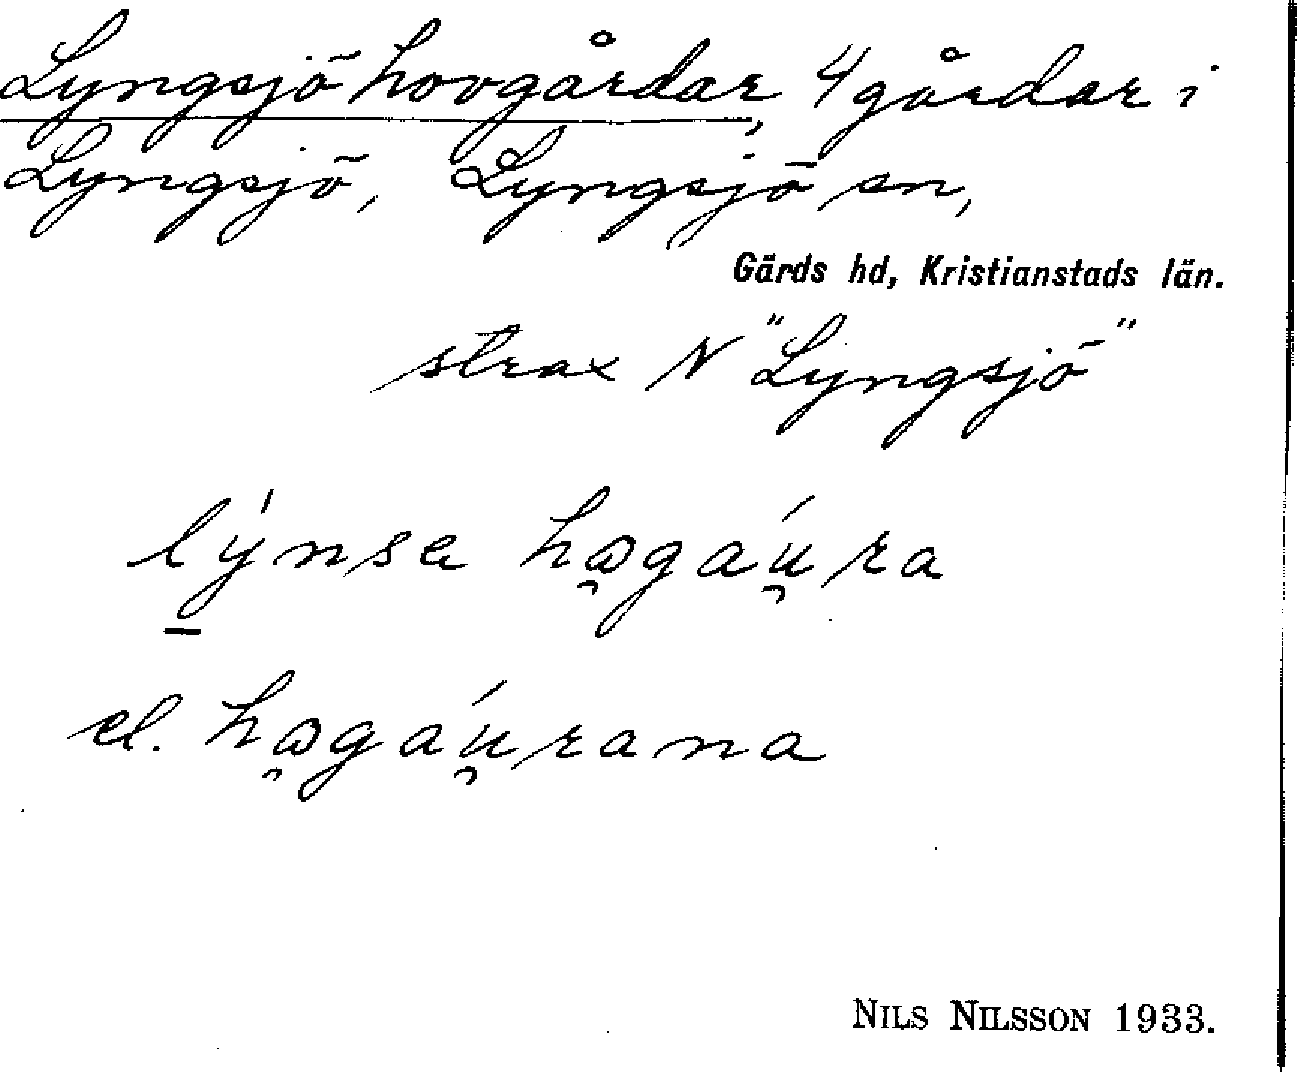 Lyngsjö hovgårdar, 4 gårdar i
Lyngsjö, Lyngsjö sn,
Gärds hd, Kristianstads län.
strax N "Lyngsjö"
lýnsa
el.
NILS NILSSON 1933.